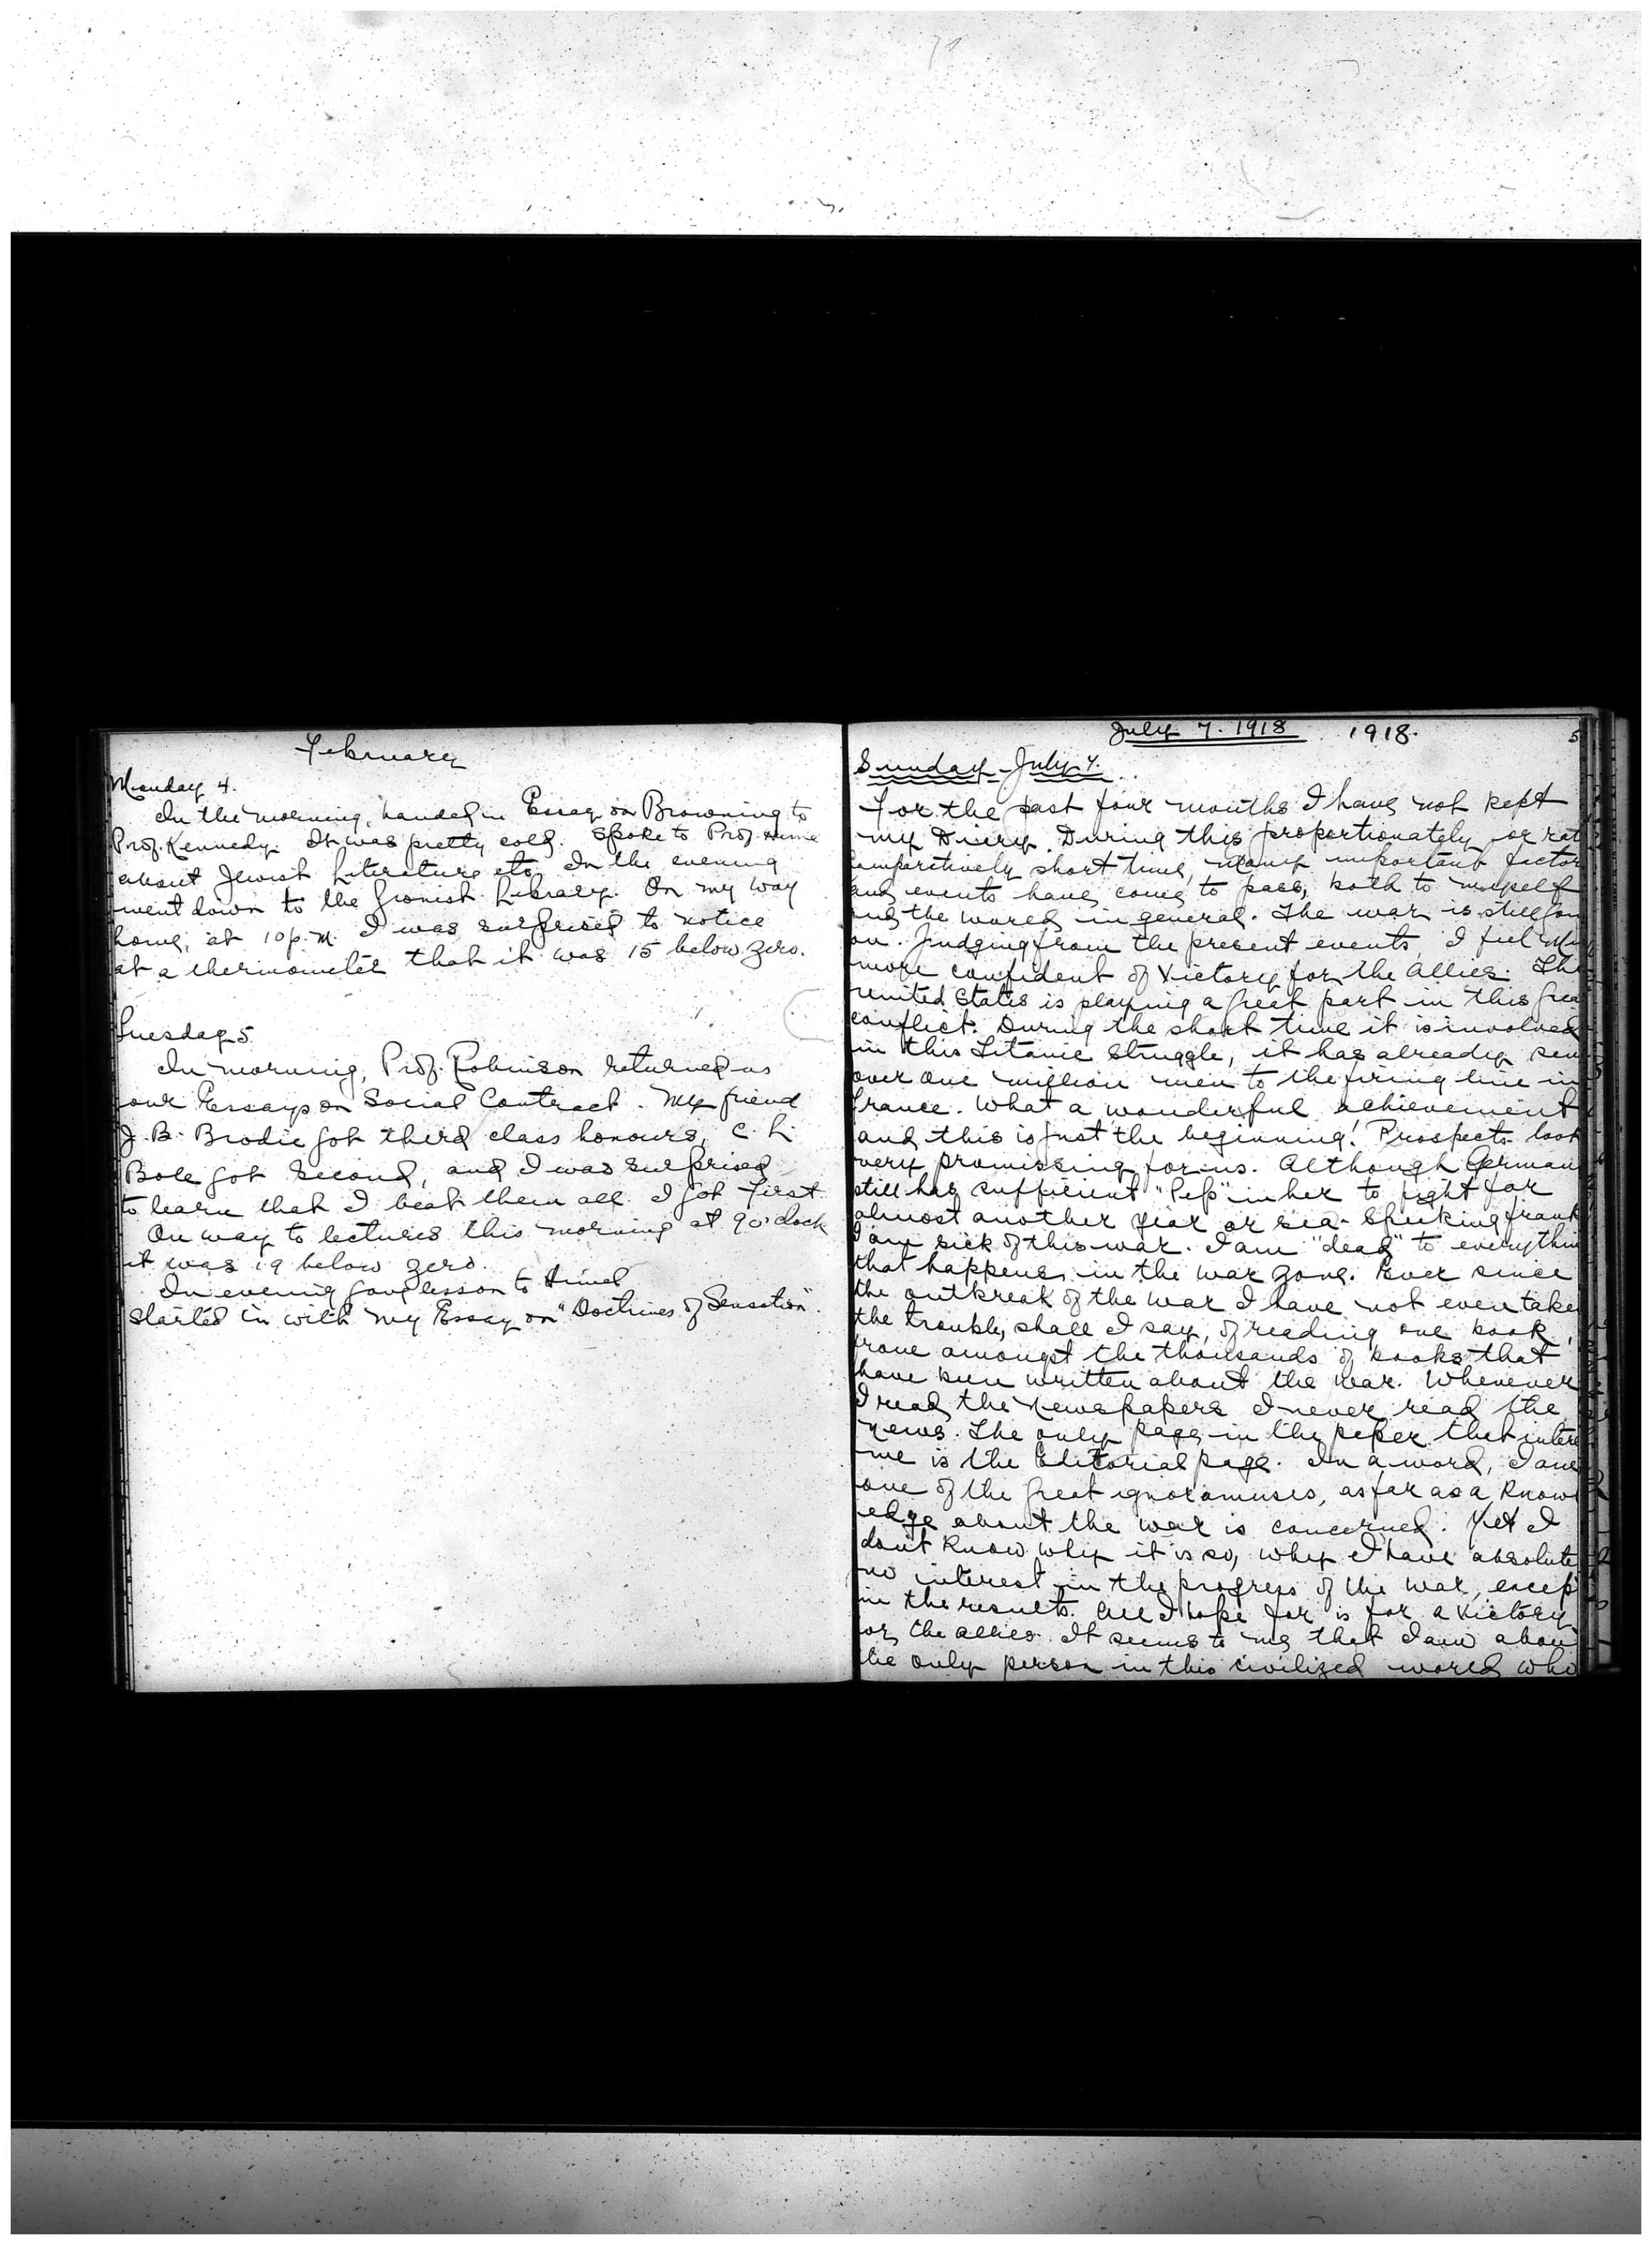 February
Monday 4.
In the morning, handed in Essay on Browning to
Prof. Kennedy. It was pretty cold. Spoke to Prof. Hume
about Jewish Literature etc. In the evening
went down to the Zionist Library. On my way
home, at 10 p.m. I was surprised to notice
at a thermometer that it was 15 below zero.
Tuesday 5.
In morning, Prof. Robinson returned us
our Essays on Social Contract. My friend
J.B. Brodie got third class honours, C. L.
Bole got second, and I was surprised
to learn that I beat them all. I got first.
On way to lectures this morning at 9 o'clock
it was 19 below zero.
In evening gave lesson to Himel
Started in with my Essay on "Doctrines of Sensation".
July 7. 1918 1918. 5
Sunday July 7.
For the past four months I have not kept
my Diery. During this proportionately or rat
comparitively short time, many important factor
and events have come to pass, both to myself
and the world in general. The war is still goin
on. Judging from the present events, I feel
more confident of Victory for the Allies. The
United States is playing a great part in this grea
conflict. During the short time it is involved
in this Titanic Struggle, it has already sen
over one million men to the firing line in
France. What a wonderful achievement
and this is just the beginning! Prospects look
very promissing for us. Although German
still has sufficient "Pep" in her to fight for
almost another year or so. Speeking frank
I am sick of this war. I am "dead" to everythin
that happens in the war zone. Ever since
the outbreak of the war I have not even take
the trouble, shall I say, of reading one book,
from amongst the thousands of books that
have been written about the war. Whenever
I read the Newspapers I never read the
news. The only page in the peper that intere
me is the Editorial page. In a word, I am
one of the great ignoramuses, as far as a know
edge about the war is concerned. Yet I
dont know why it is so, why I have absolute
no interest in the progress of the war, excep
in the results. All I hope for is for a victory
for the allies. It seems to me that I am abou
the only person in this civilized world who